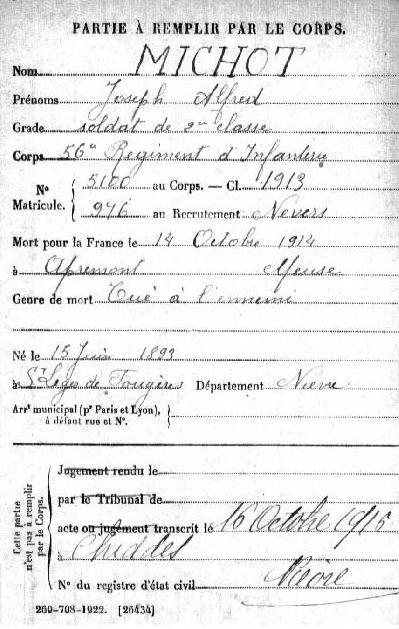 PARTIE À REMPLIR PAR LE CORPS.
Nom MICHOT
Prénoms Joseph Alfred
Grade soldat de 2me classe
Corps 56e Régiment d'Infanterie
N° Matricule. { 5160 au Corps. — Cl. 1913
976 au Recrutement Nevers
Mort pour la France le 14 Octobre 1914
à Apremont Meuse
Genre de mort Tué à l'ennemi
Né le 15 Juin 1893
à St Léger de Fougeres Département Nièvre
Arrt municipal (pr Paris et Lyon), à défaut rue et N°.
Cette partie n'est pas à remplir par le Corps.
Jugement rendu le
par le Tribunal de
acte ou jugement transcrit le 16 Octobre 1915
à Chiddes
Nièvre
N° du registre d'état civil
269-708-1922. [26434]